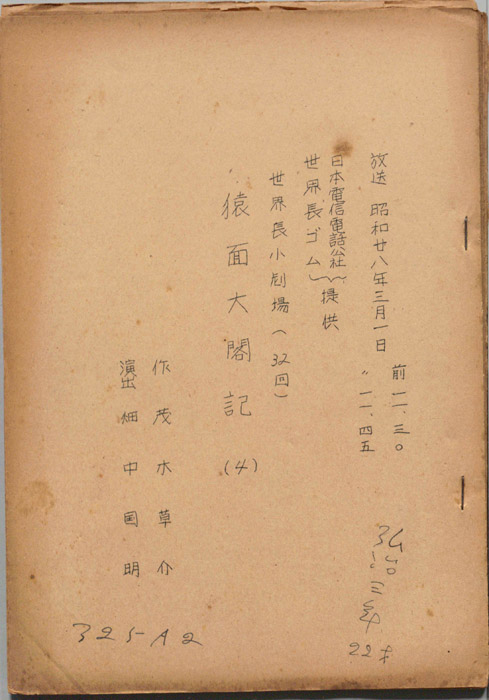 放送 昭和廿八年三月一日
前一一.三〇
〃一一.四五
日本電信電話公社
世界長ゴム 提供
世界長小劇場(32回)
猿面大閤記(4)
作 茂木草介
演出 畑中国明
弘治三年
22才
325-A2